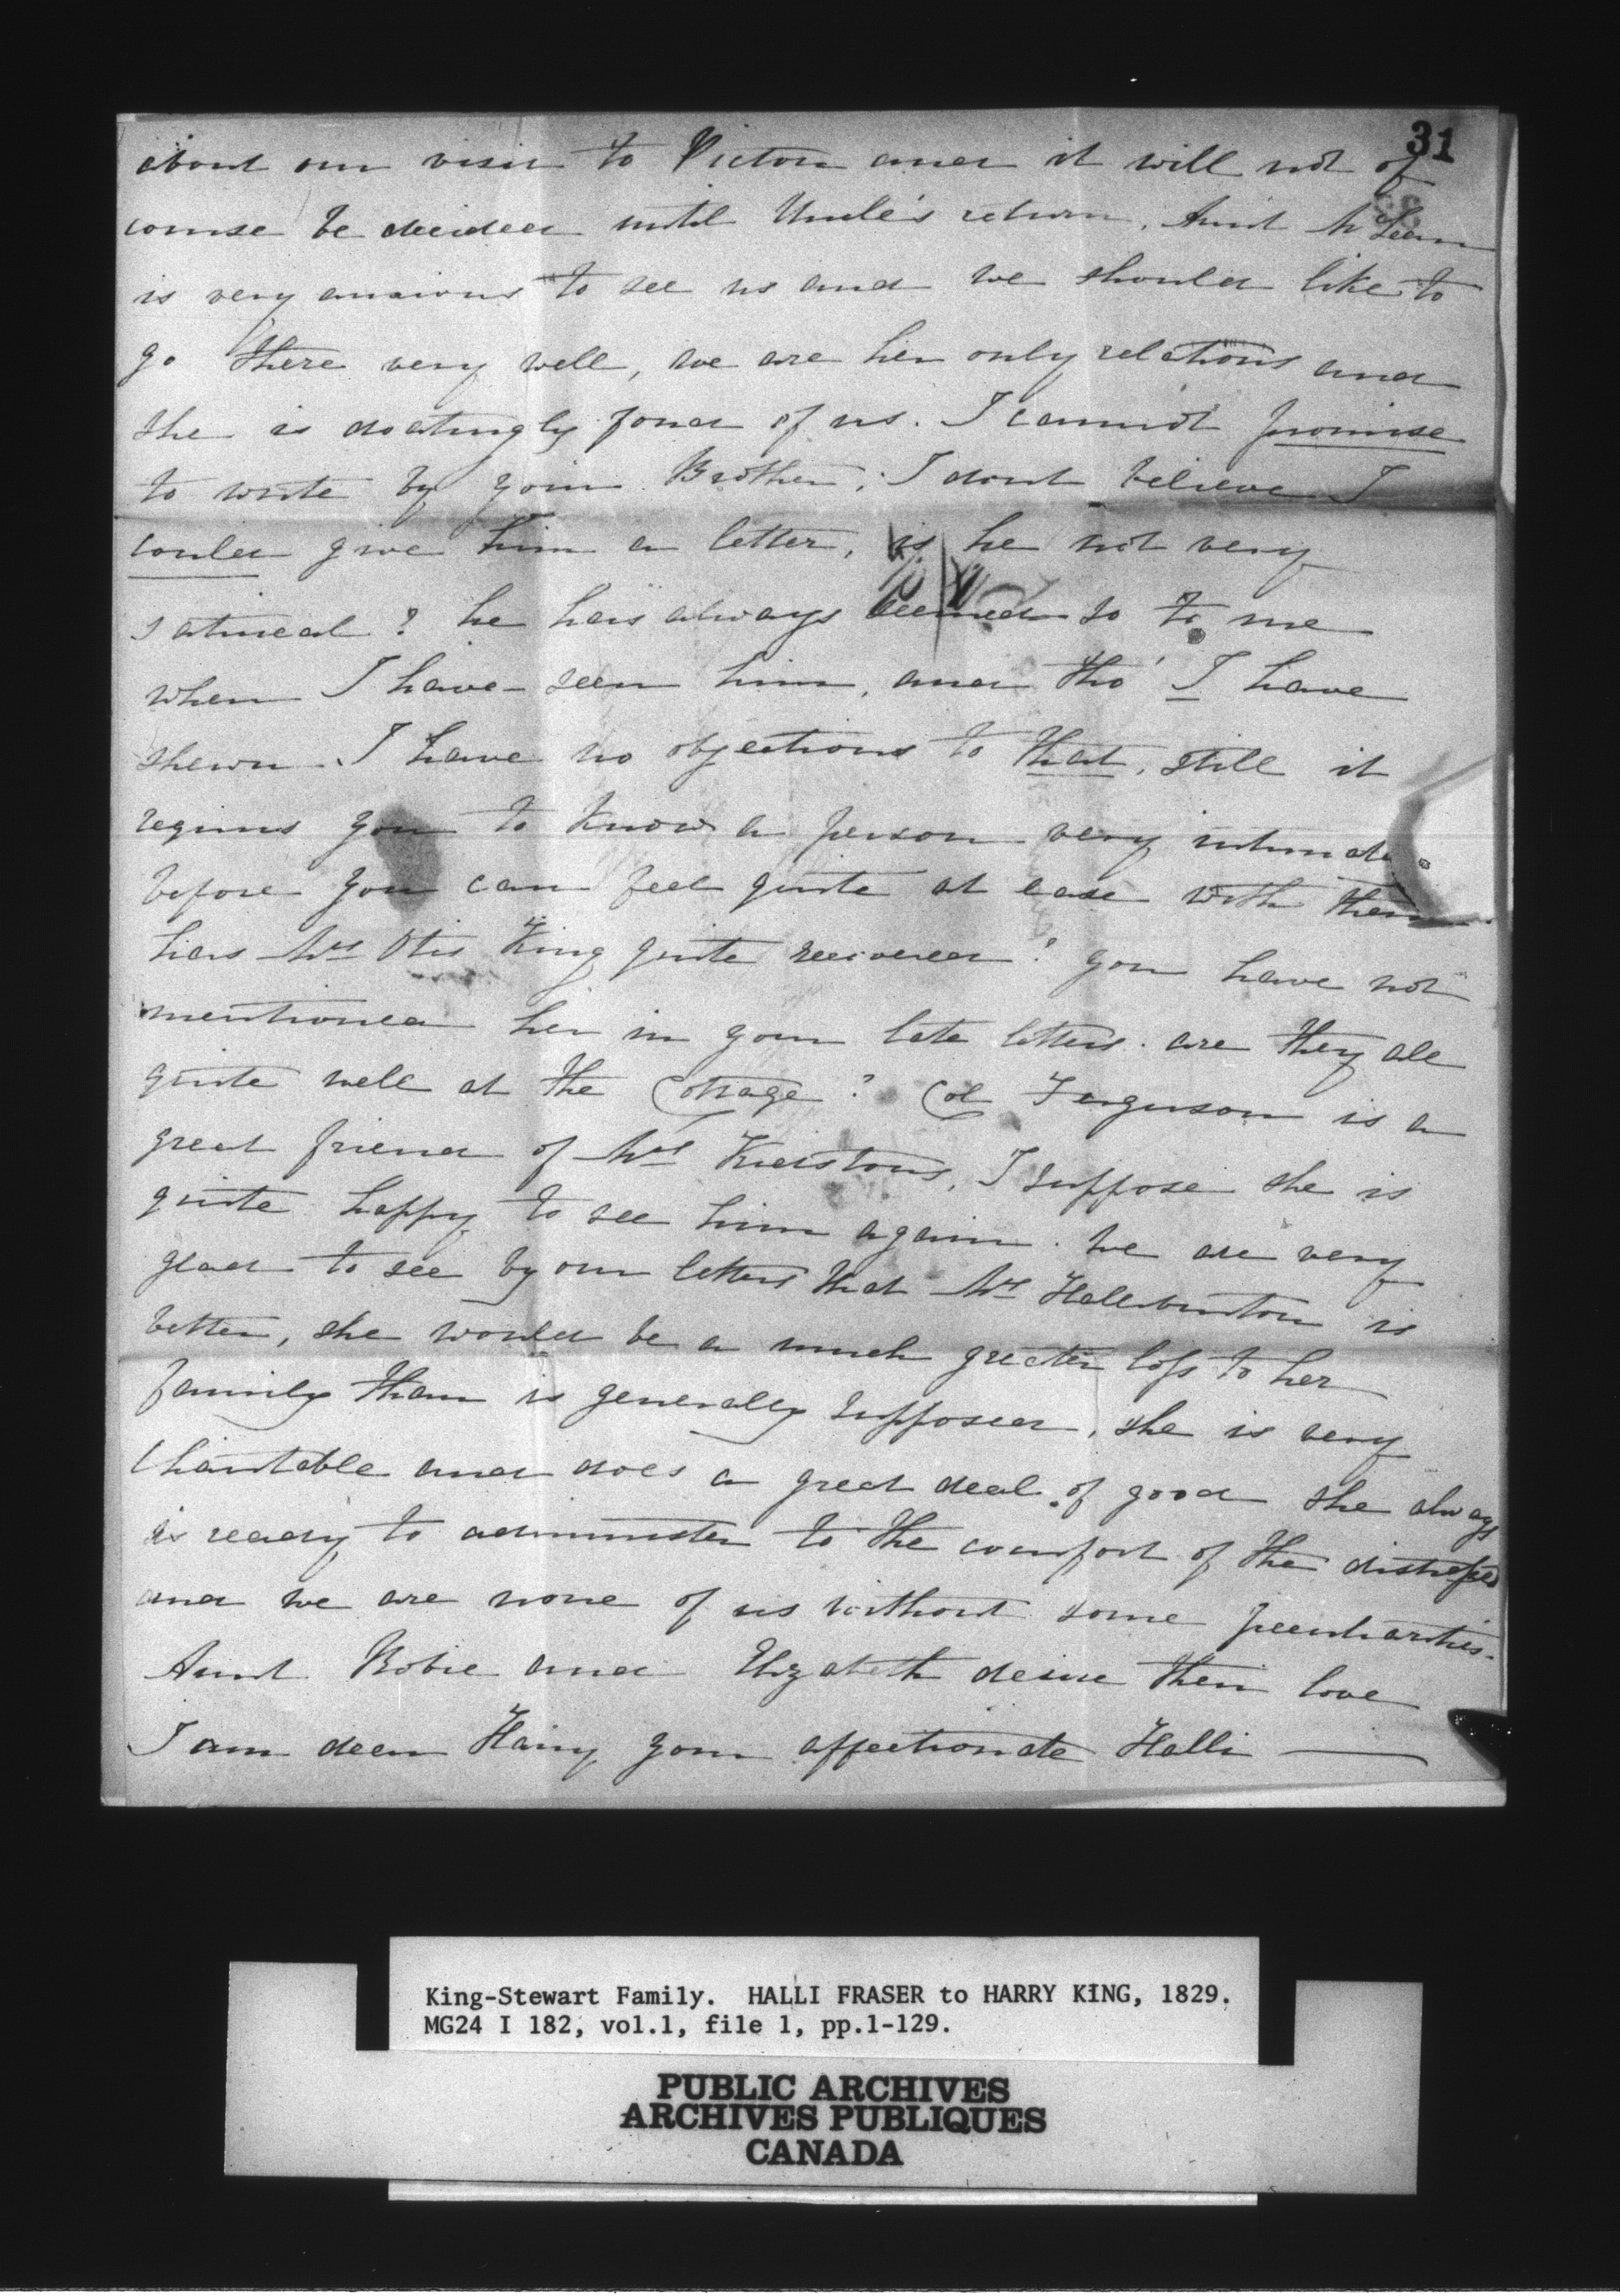 31
about our visit to Pictou and it will not of
course be decided until Uncle's return, Aunt McLean
is very anxious to see us and we should like to
go there very well, we are her only relations and
she is doatingly fond of us. I cannot promise
to write by your Brother, I dont believe I
could give him a letter, is he not very
satirical? he has always seemed so to me
when I have seen him, and tho' I have
shewn I have no objections to that, still it
requires you to know a person very intimate
before you can feel quite at ease with them
has Mrs Otis King quite recovered? you have not
mentioned her in your late letters. are they all
quite well at the Cottage? Col Ferguson is a
great friend of Mrs Kidstons, I suppose she is
quite happy to see him again. we are very
glad to see by our letters that Mrs Halliburton is
better, she would be a much greater loss to her
family than is generally supposed, she is very
charitable and does a great deal of good she always
is ready to administer to the comfort of the distressed
and we are none of us without some peculiarities.
Aunt Robie and Elizabeth desire their love
I am dear Harry your affectionate Halli —
King-Stewart Family. HALLI FRASER to HARRY KING, 1829.
MG24 I 182, vol.1, file 1, pp.1-129.
PUBLIC ARCHIVES
ARCHIVES PUBLIQUES
CANADA